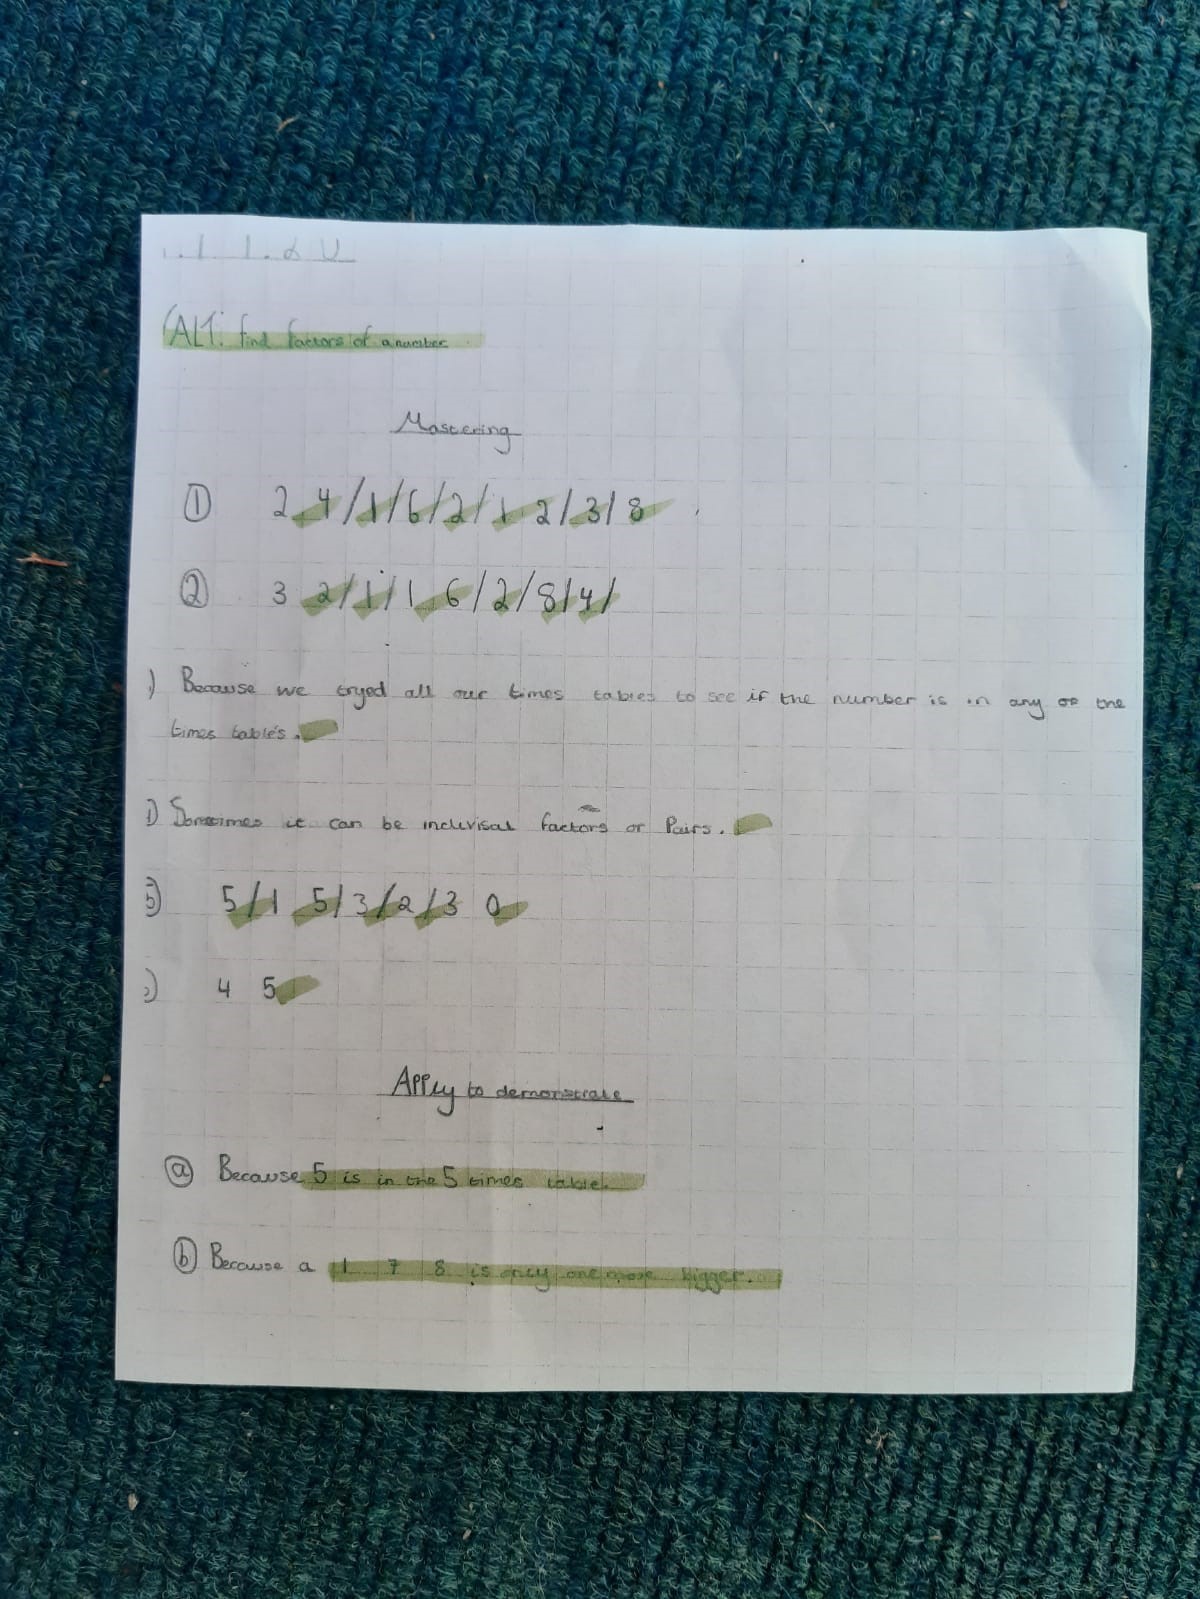 CALT: find factors of a number
Mastering
① 2 4/1/6/2/1 2/3/8
② 3 2/1/1 6/2/8/4/
) Because we tryed all our times tables to see if the number is in any of the
times tables.
) Sometimes it can be indivisal factors or Pairs.
5) 5/1 5/3/2/3 0
) 4 5
Apply to demonstrate
ⓐ Because 5 is in the 5 times table.
ⓑ Because a 1 7 8 is only one more bigger.